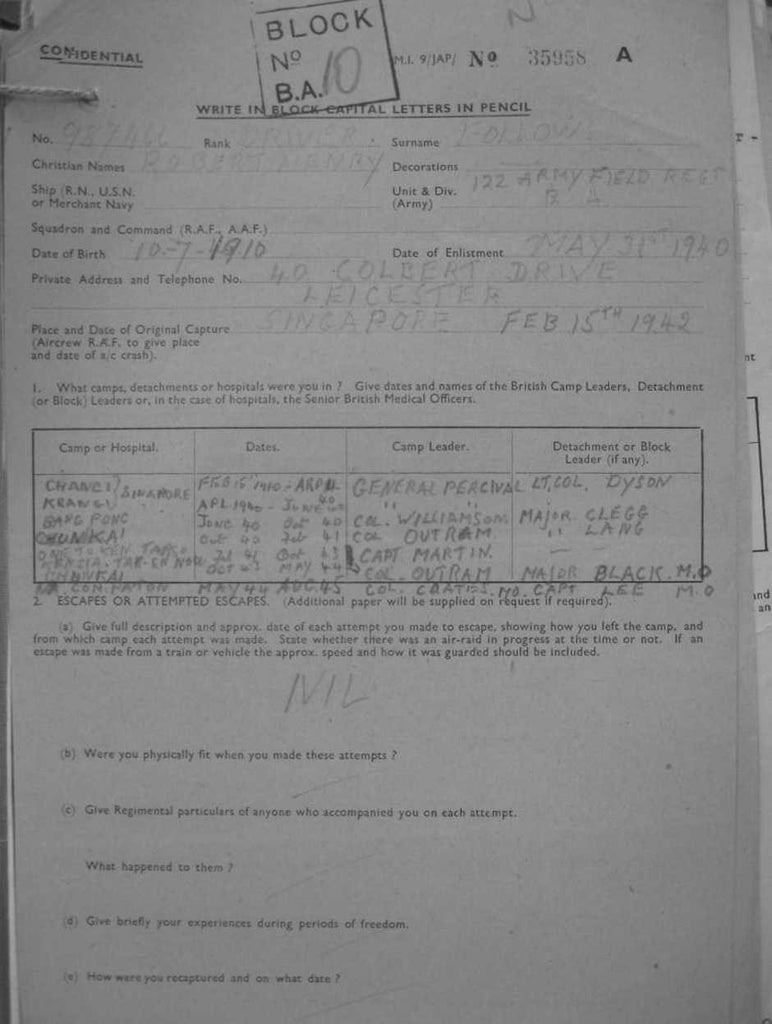 BLOCK
Nº 10
B.A.
CONFIDENTIAL
M.I. 9/JAP/ Nº 35958 A
WRITE IN BLOCK CAPITAL LETTERS IN PENCIL
No. Rank DRIVER Surname
Christian Names ROBERT HENRY Decorations
Ship (R.N., U.S.N. or Merchant Navy
Unit & Div. (Army) 122 ARMY FIELD REGT
Squadron and Command (R.A.F., A.A.F.)
Date of Birth 10-7-1910 Date of Enlistment MAY 31ST 1940
Private Address and Telephone No. 40 COLBERT DRIVE
LEICESTER
Place and Date of Original Capture SINGAPORE FEB 15TH 1942
(Aircrew R.A.F. to give place
and date of a/c crash).
1. What camps, detachments or hospitals were you in ? Give dates and names of the British Camp Leaders, Detachment
(or Block) Leaders or, in the case of hospitals, the Senior British Medical Officers.
Camp or Hospital. Dates. Camp Leader. Detachment or Block
Leader (if any).
CHANGI, FEB 15 1940 - GENERAL PERCIVAL LT, COL, DYSON
KRANGI, APL 1940 - JUNE 40 " "
JUNE 40 Oct 40 COL. WILLIAMSON MAJOR CLEGG
CHUNKAI Oct 40 Feb 41 COL OUTRAM " LANG
Jul 41 Oct 43 CAPT MARTIN. —
CHUNKAI Oct 43 MAY 44 COL. OUTRAM MAJOR BLACK. M.O
MAY 44 AUG. 45 COL. M.O. CAPT LEE M.O
2. ESCAPES OR ATTEMPTED ESCAPES. (Additional paper will be supplied on request if required).
(a) Give full description and approx. date of each attempt you made to escape, showing how you left the camp, and
from which camp each attempt was made. State whether there was an air-raid in progress at the time or not. If an
escape was made from a train or vehicle the approx. speed and how it was guarded should be included.
NIL
(b) Were you physically fit when you made these attempts ?
(c) Give Regimental particulars of anyone who accompanied you on each attempt.
What happened to them ?
(d) Give briefly your experiences during periods of freedom.
(e) How were you recaptured and on what date ?